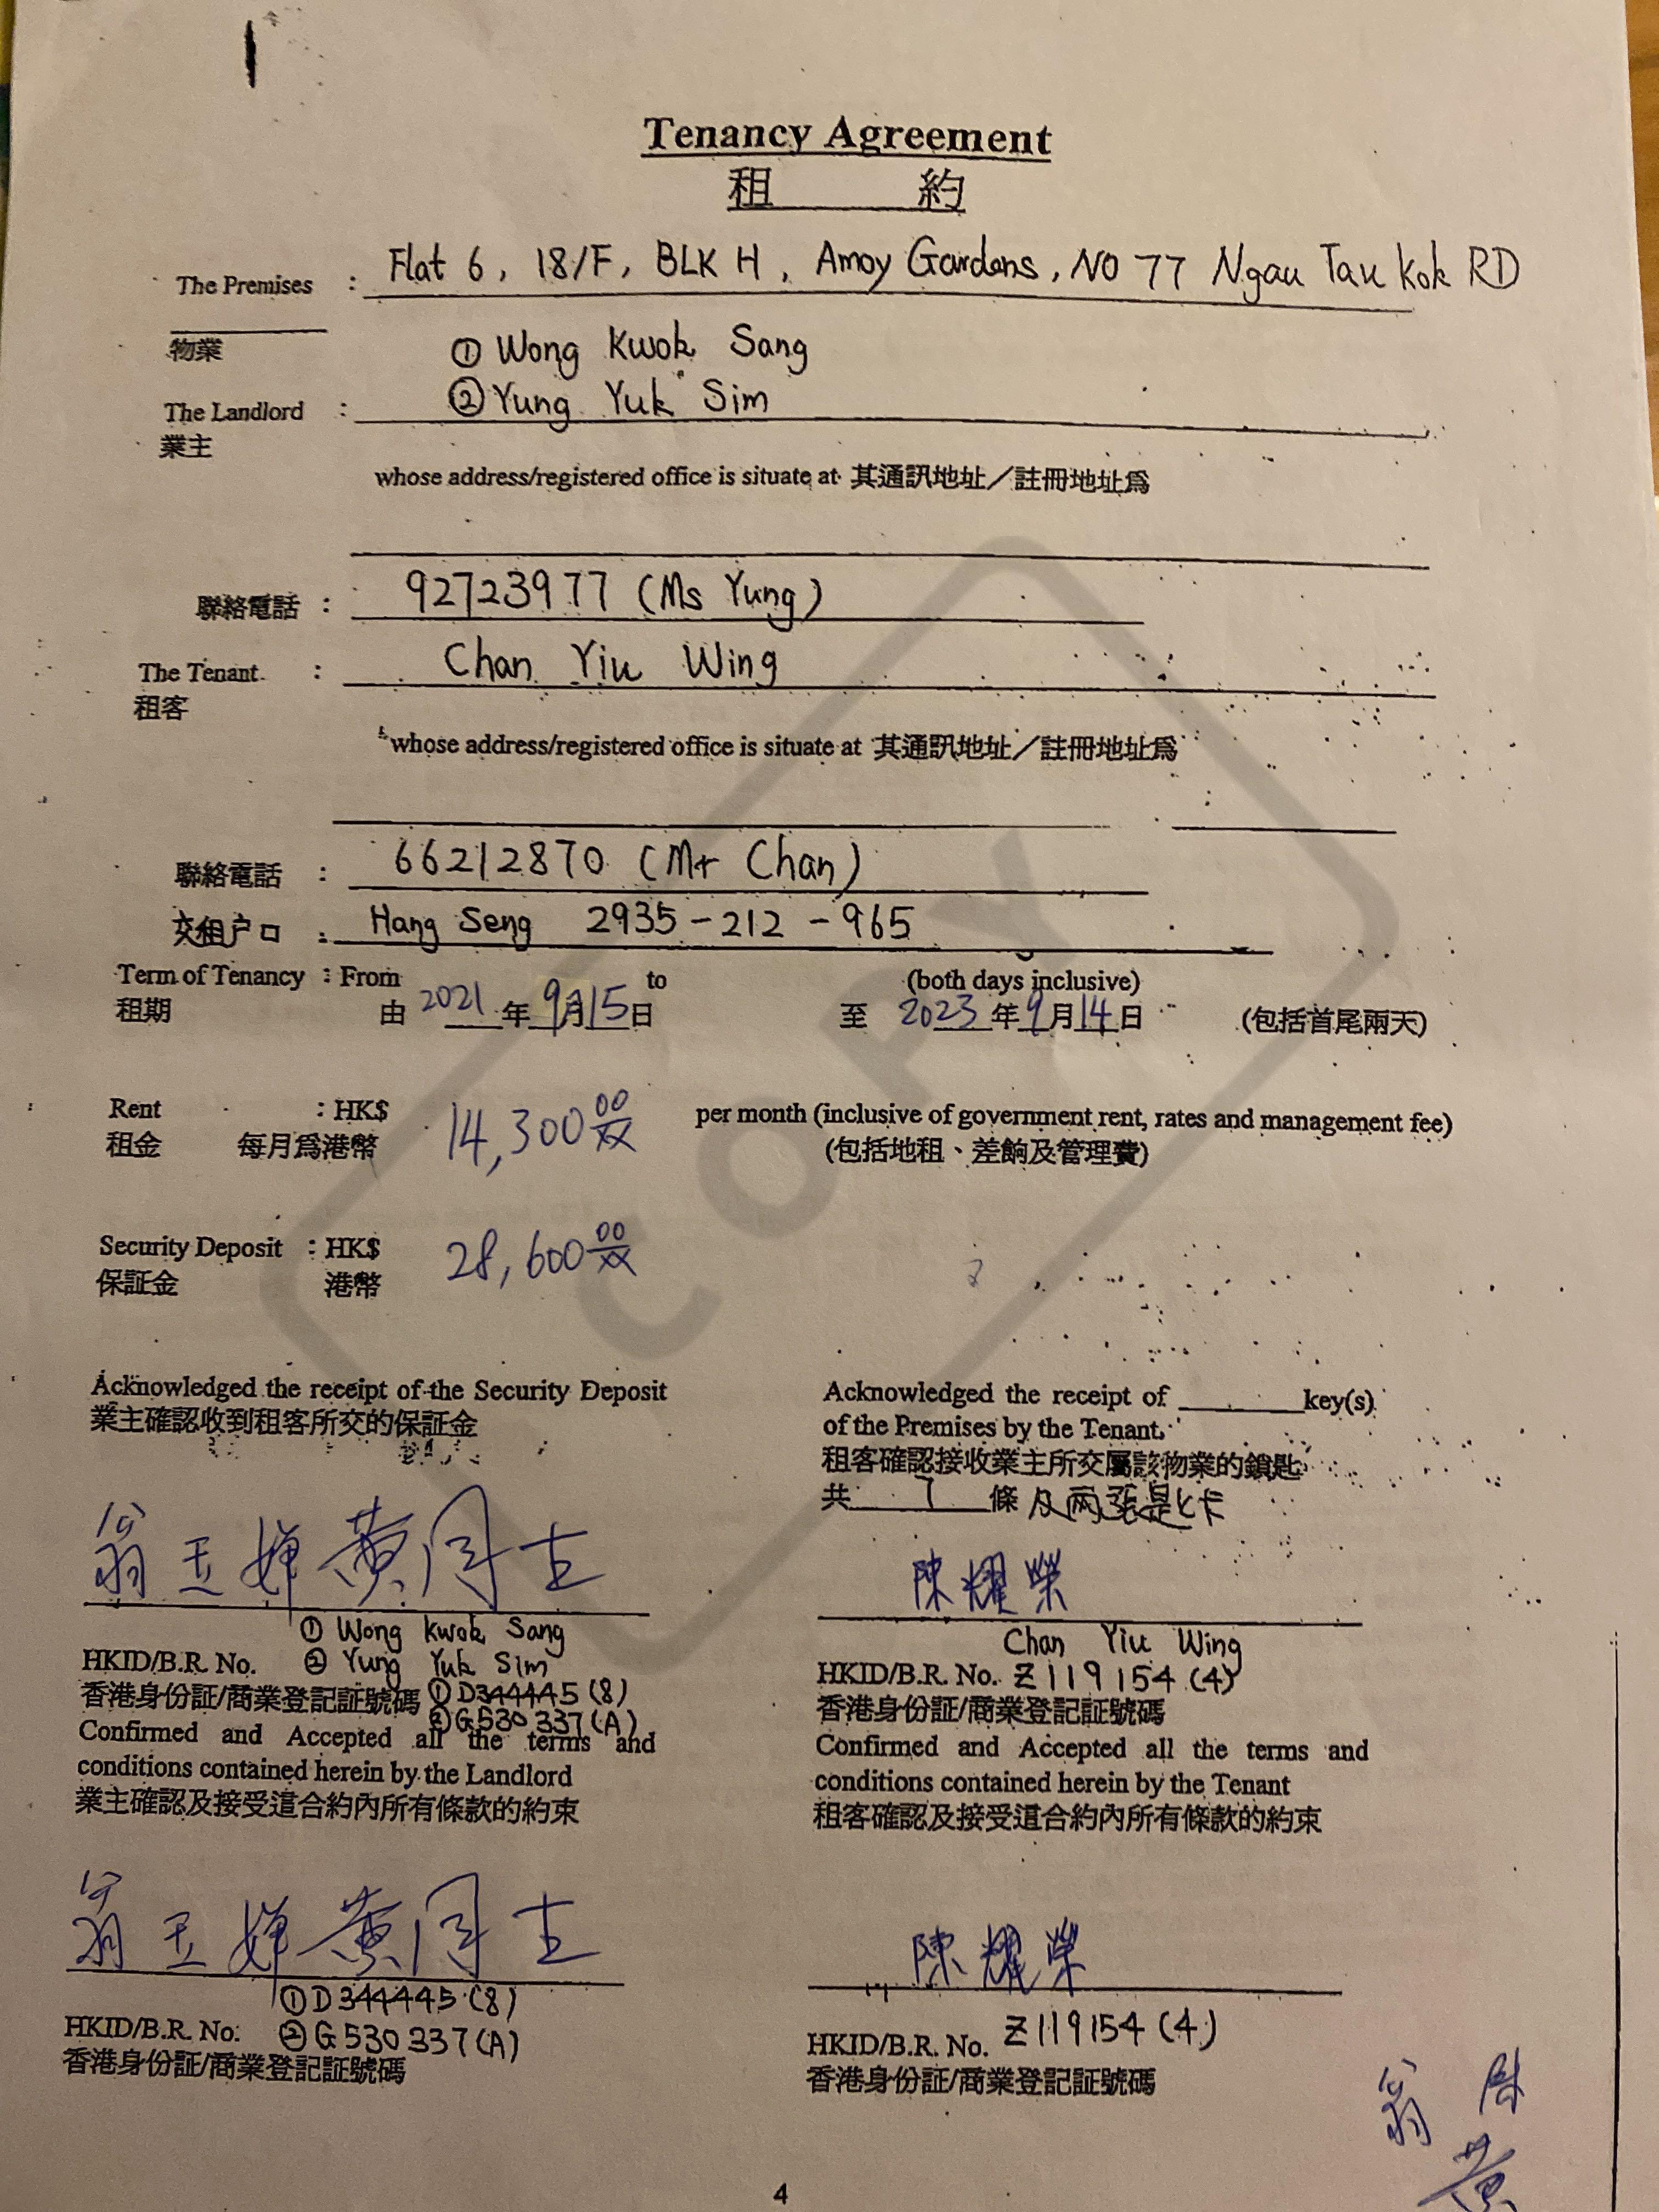 Tenancy Agreement
租 約
The Premises : Flat 6, 18/F, BLK H, Amoy Gardens, NO 77 Ngau Tau Kok RD
物業
① Wong Kwok Sang
The Landlord : ② Yung Yuk Sim
業主
whose address/registered office is situate at 其通訊地址／註冊地址爲
聯絡電話 : 92723977 (Ms Yung)
The Tenant : Chan Yiu Wing
租客
whose address/registered office is situate at 其通訊地址／註冊地址爲
聯絡電話 : 66212870 (Mr Chan)
交租户口 : Hang Seng 2935-212-965
Term of Tenancy : From to (both days inclusive)
租期 由 2021 年 9 月 15 日 至 2023 年 9 月 14 日 (包括首尾兩天)
Rent : HK$ 14,300 00/xx per month (inclusive of government rent, rates and management fee)
租金 每月爲港幣 (包括地租、差餉及管理費)
Security Deposit : HK$ 28,600 00/xx
保証金 港幣
COPY
Acknowledged the receipt of the Security Deposit
業主確認收到租客所交的保証金
Acknowledged the receipt of ______ key(s)
of the Premises by the Tenant.
租客確認接收業主所交屬該物業的鎖匙
共 7 條 及兩張是卡
陳耀榮
① Wong Kwok Sang
② Yung Yuk Sim
HKID/B.R. No.
香港身份証/商業登記証號碼 ① D344445(8)
② G530337(A)
Confirmed and Accepted all the terms and
conditions contained herein by the Landlord
業主確認及接受這合約內所有條款的約束
Chan Yiu Wing
HKID/B.R. No. Z119154(4)
香港身份証/商業登記証號碼
Confirmed and Accepted all the terms and
conditions contained herein by the Tenant
租客確認及接受這合約內所有條款的約束
陳耀榮
① D344445(8)
HKID/B.R. No. ② G530337(A)
香港身份証/商業登記証號碼
HKID/B.R. No. Z119154(4)
香港身份証/商業登記証號碼
4